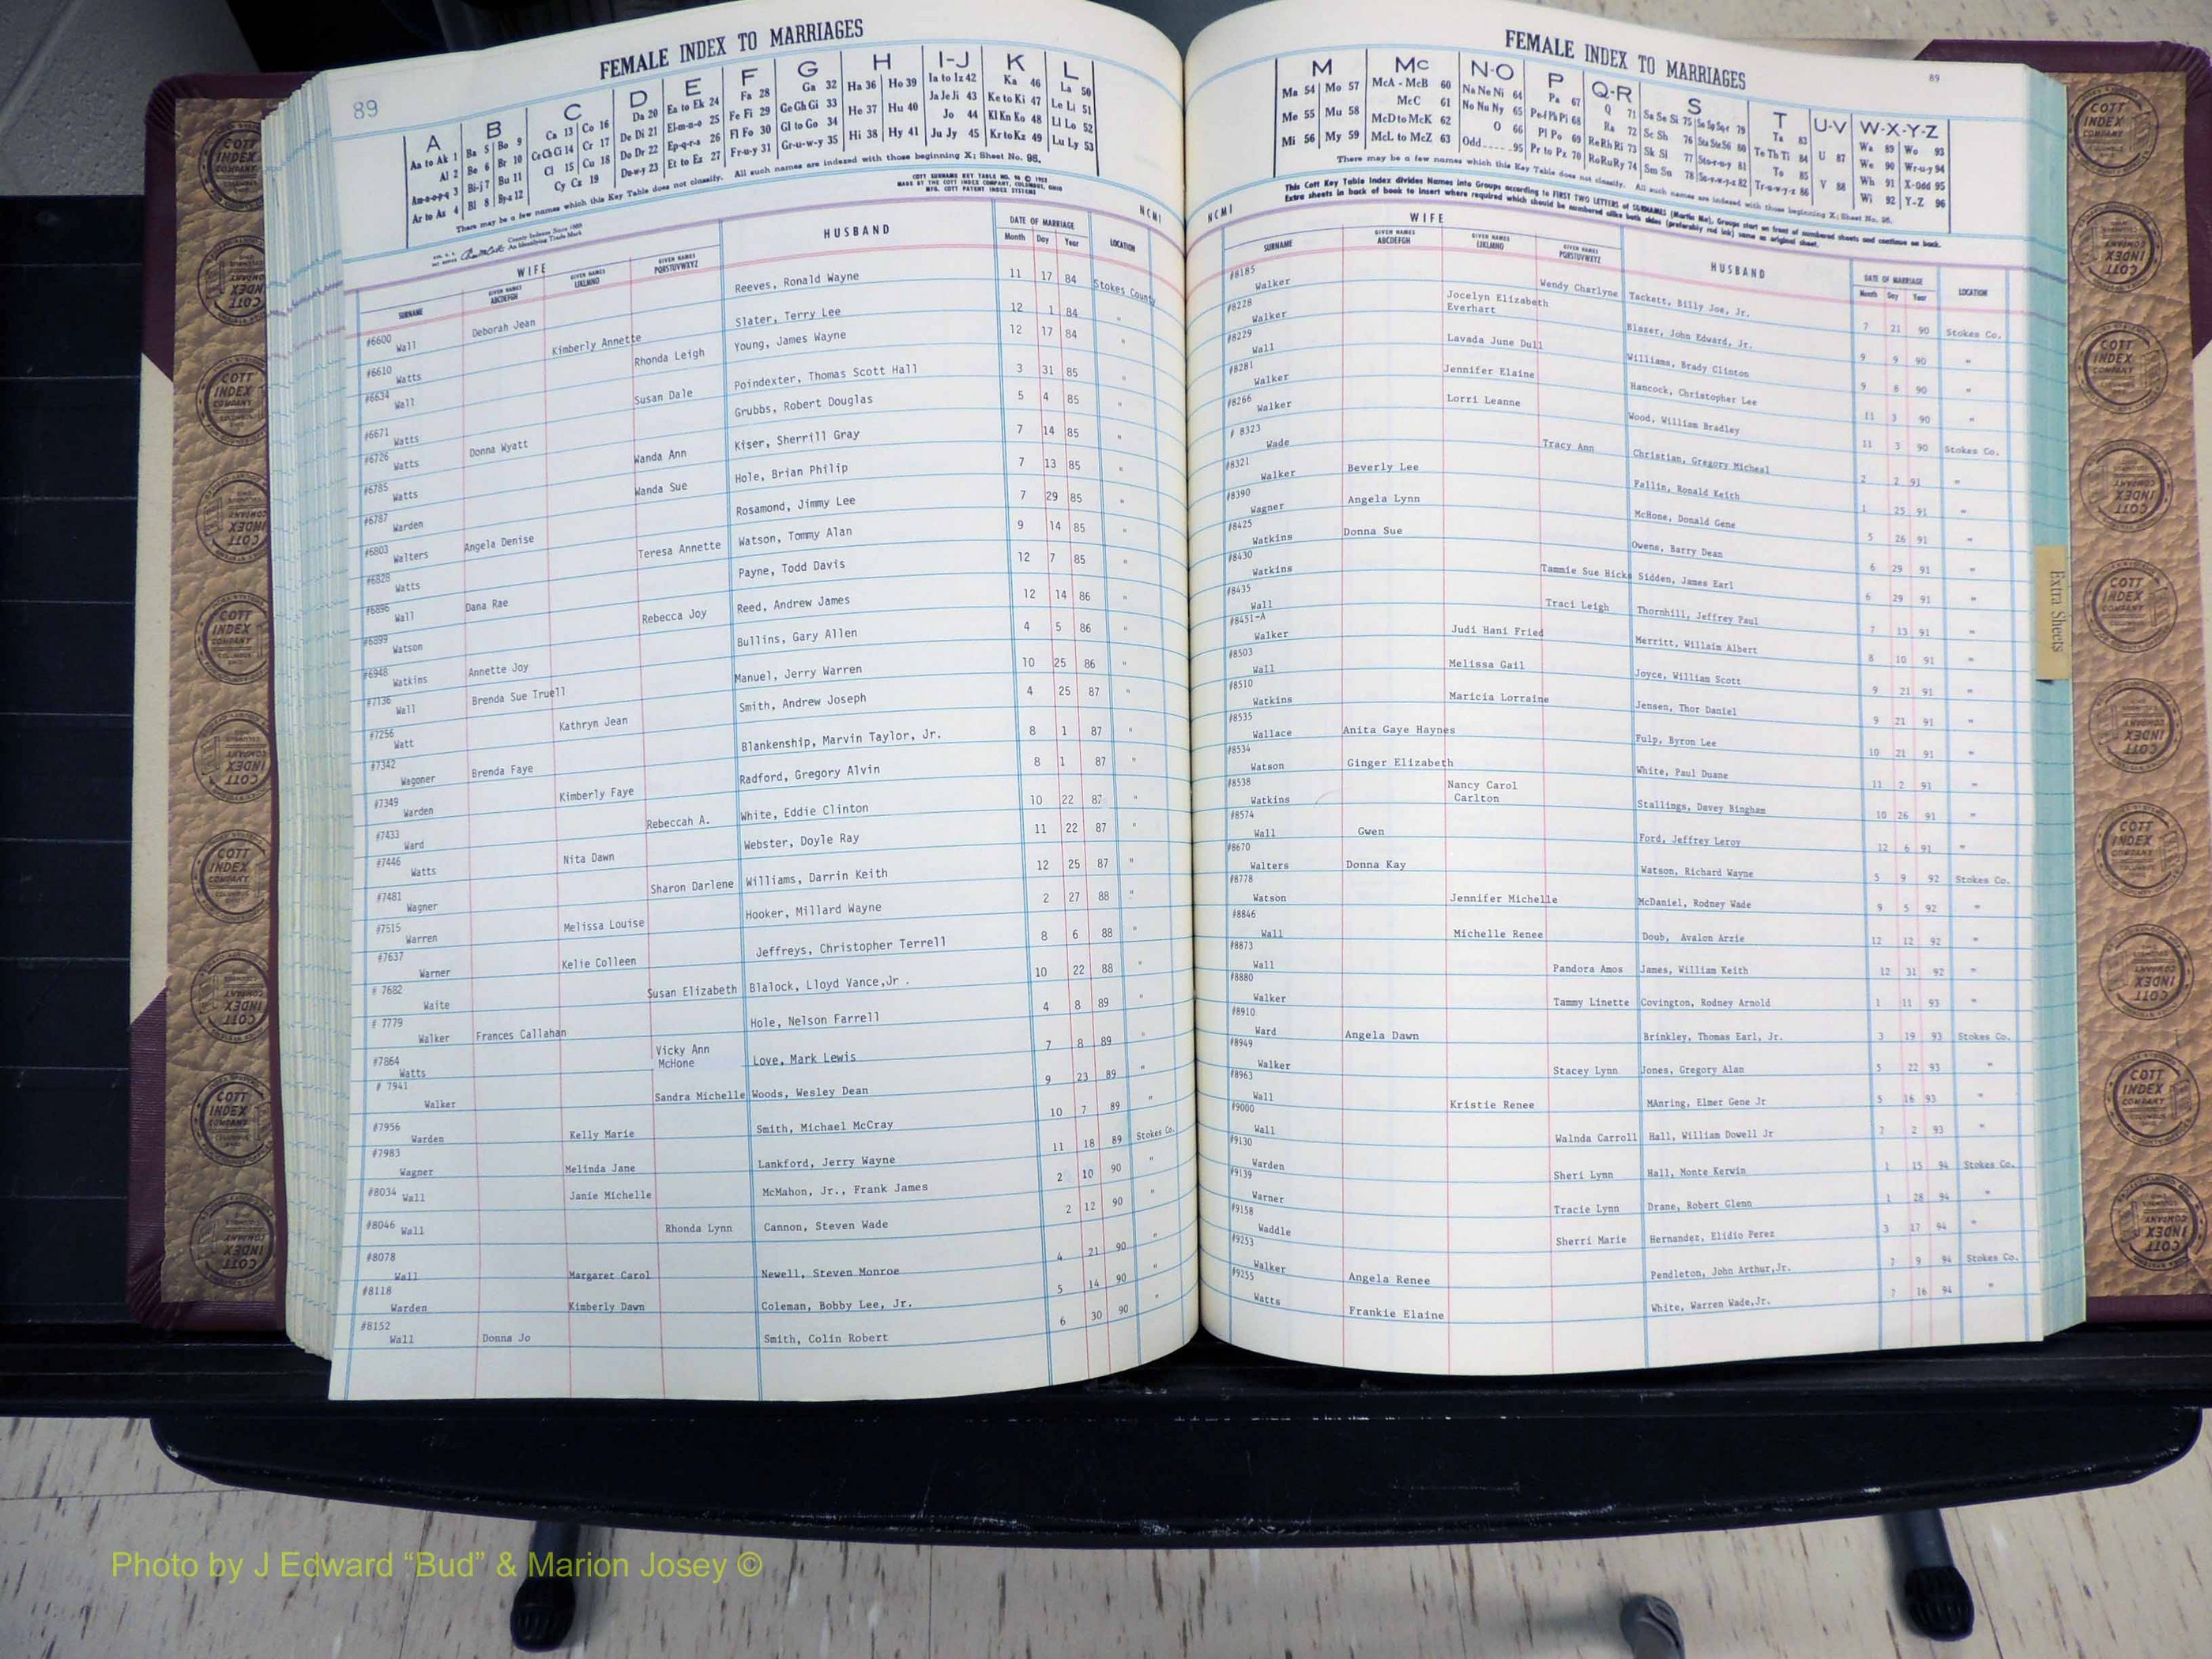 FEMALE INDEX TO MARRIAGES
89
A B C D E F G H I-J K L
Aa to Ak 1 Ba 5 Bo 9 Ca 13 Co 16 Da 20 Ea to Ek 24 Fa 28 Ga 32 Ha 36 Ho 39 Ia to Iz 42 Ka 46 La 50
Al 2 Be 6 Br 10 Ce Ch Ci 14 Cr 17 De Di 21 El-m-n-o 25 Fe Fi 29 Ge Gh Gi 33 He 37 Hu 40 Ja Je Ji 43 Ke to Ki 47 Le Li 51
Am-n-o-p-q 3 Bi-j 7 Bu 11 Cl 15 Cu 18 Do Dr 22 Ep-q-r-s 26 Fl Fo 30 Gl to Go 34 Hi 38 Hy 41 Jo 44 Kl Kn Ko 48 Ll Lo 52
Ar to Az 4 Bl 8 By-z 12 Cy Cz 19 Du-w-y 23 Et to Ez 27 Fr-u-y 31 Gr-u-w-y 35 Ju Jy 45 Kr to Kz 49 Lu Ly 53
There may be a few names which this Key Table does not classify. All such names are indexed with those beginning X; Sheet No. 95.
MADE BY THE COTT INDEX COMPANY, COLUMBUS, OHIO
NCMI
WIFE HUSBAND DATE OF MARRIAGE LOCATION
SURNAME GIVEN NAMES ABCDEFGH GIVEN NAMES IJKLMNO GIVEN NAMES PQRSTUVWXYZ Month Day Year
#6600 Wall Deborah Jean Reeves, Ronald Wayne 11 17 84 Stokes County
#6610 Watts Kimberly Annette Slater, Terry Lee 12 1 84 "
#6634 Wall Rhonda Leigh Young, James Wayne 12 17 84 "
#6671 Watts Susan Dale Poindexter, Thomas Scott Hall 3 31 85 "
#6726 Watts Donna Wyatt Grubbs, Robert Douglas 5 4 85 "
#6785 Watts Wanda Ann Kiser, Sherrill Gray 7 14 85 "
#6787 Warden Wanda Sue Hole, Brian Philip 7 13 85 "
#6803 Walters Angela Denise Rosamond, Jimmy Lee 7 29 85 "
#6828 Watts Teresa Annette Watson, Tommy Alan 9 14 85 "
#6896 Wall Dana Rae Payne, Todd Davis 12 7 85 "
#6899 Watson Rebecca Joy Reed, Andrew James 12 14 86 "
#6948 Watkins Annette Joy Bullins, Gary Allen 4 5 86 "
#7136 Wall Brenda Sue Truell Manuel, Jerry Warren 10 25 86 "
#7256 Watt Kathryn Jean Smith, Andrew Joseph 4 25 87 "
#7342 Wagoner Brenda Faye Blankenship, Marvin Taylor, Jr. 8 1 87 "
#7349 Warden Kimberly Faye Radford, Gregory Alvin 8 1 87 "
#7433 Ward Rebeccah A. White, Eddie Clinton 10 22 87 "
#7446 Watts Nita Dawn Webster, Doyle Ray 11 22 87 "
#7481 Wagner Sharon Darlene Williams, Darrin Keith 12 25 87 "
#7515 Warren Melissa Louise Hooker, Millard Wayne 2 27 88 "
#7637 Warner Kelie Colleen Jeffreys, Christopher Terrell 8 6 88 "
# 7682 Waite Susan Elizabeth Blalock, Lloyd Vance,Jr . 10 22 88 "
# 7779 Walker Frances Callahan Hole, Nelson Farrell 4 8 89 "
#7864 Watts Vicky Ann McHone Love, Mark Lewis 7 8 89 "
# 7941 Walker Sandra Michelle Woods, Wesley Dean 9 23 89 "
#7956 Warden Kelly Marie Smith, Michael McCray 10 7 89 "
#7983 Wagner Melinda Jane Lankford, Jerry Wayne 11 18 89 Stokes Co.
#8034 Wall Janie Michelle McMahon, Jr., Frank James 2 10 90 "
#8046 Wall Rhonda Lynn Cannon, Steven Wade 2 12 90 "
#8078 Wall Margaret Carol Newell, Steven Monroe 4 21 90 "
#8118 Warden Kimberly Dawn Coleman, Bobby Lee, Jr. 5 14 90 "
#8152 Wall Donna Jo Smith, Colin Robert 6 30 90 "
FEMALE INDEX TO MARRIAGES
89
M Mc N-O P Q-R S T U-V W-X-Y-Z
Ma 54 Mo 57 McA - McB 60 Na Ne Ni 64 Pa 67 Q 71 Sa Se Si 75 Ta 83 U 87 Wa 89 Wo 93
Me 55 Mu 58 McC 61 No Nu Ny 65 Pe-f Ph Pi 68 Ra 72 Sc Sh 76 Te Th Ti 84 V 88 We 90 Wr-u-y 94
Mi 56 My 59 McD to McK 62 O 66 Pl Po 69 Re Rh Ri 73 Sk Sl 77 To 85 Wh 91 X-Odd 95
McL to McZ 63 Odd 95 Pr to Pz 70 Ro Ru Ry 74 Sm Sn 78 Tr-u-w-y-z 86 Wi 92 Y-Z 96
There may be a few names which this Key Table does not classify. All such names are indexed with those beginning X; Sheet No. 95.
This Cott Key Table Index divides Names into Groups according to FIRST TWO LETTERS of SURNAMES (Martin Ma), Groups start on front of numbered sheets and continue on back.
Extra sheets in back of book to insert where required which should be numbered alike both sides (preferably red ink) same as original sheet.
NCMI
WIFE HUSBAND DATE OF MARRIAGE LOCATION
SURNAME GIVEN NAMES ABCDEFGH GIVEN NAMES IJKLMNO GIVEN NAMES PQRSTUVWXYZ Month Day Year
#8185 Walker Wendy Charlyne Tackett, Billy Joe, Jr. 7 21 90 Stokes Co.
#8228 Walker Jocelyn Elizabeth Everhart Blazer, John Edward, Jr. 9 9 90 "
#8229 Wall Lavada June Dull Williams, Brady Clinton 9 8 90 "
#8281 Walker Jennifer Elaine Hancock, Christopher Lee 11 3 90 "
#8266 Walker Lorri Leanne Wood, William Bradley 11 3 90 Stokes Co.
# 8323 Wade Tracy Ann Christian, Gregory Micheal 2 2 91 "
#8321 Walker Beverly Lee Fallin, Ronald Keith 1 25 91 "
#8390 Wagner Angela Lynn McHone, Donald Gene 5 26 91 "
#8425 Watkins Donna Sue Owens, Barry Dean 6 29 91 "
#8430 Watkins Tammie Sue Hicks Sidden, James Earl 6 29 91 "
#8435 Wall Traci Leigh Thornhill, Jeffrey Paul 7 13 91 "
#8451-A Walker Judi Hani Fried Merritt, Willaim Albert 8 10 91 "
#8503 Wall Melissa Gail Joyce, William Scott 9 21 91 "
#8510 Watkins Maricia Lorraine Jensen, Thor Daniel 9 21 91 "
#8535 Wallace Anita Gaye Haynes Fulp, Byron Lee 10 21 91 "
#8534 Watson Ginger Elizabeth White, Paul Duane 11 2 91 "
#8538 Watkins Nancy Carol Carlton Stallings, Davey Bingham 10 26 91 "
#8574 Wall Gwen Ford, Jeffrey Leroy 12 6 91 "
#8670 Walters Donna Kay Watson, Richard Wayne 5 9 92 Stokes Co.
#8778 Watson Jennifer Michelle McDaniel, Rodney Wade 9 5 92 "
#8846 Wall Michelle Renee Doub, Avalon Arzie 12 12 92 "
#8873 Wall Pandora Amos James, William Keith 12 31 92 "
#8880 Walker Tammy Linette Covington, Rodney Arnold 1 11 93 "
#8910 Ward Angela Dawn Brinkley, Thomas Earl, Jr. 3 19 93 Stokes Co.
#8949 Walker Stacey Lynn Jones, Gregory Alan 5 22 93 "
#8963 Wall Kristie Renee MAnring, Elmer Gene Jr 5 16 93 "
#9000 Wall Walnda Carroll Hall, William Dowell Jr 7 2 93 "
#9130 Warden Sheri Lynn Hall, Monte Kerwin 1 15 94 Stokes Co.
#9139 Warner Tracie Lynn Drane, Robert Glenn 1 28 94 "
#9158 Waddle Sherri Marie Hernandez, Elidio Perez 3 17 94 "
#9253 Walker Angela Renee Pendleton, John Arthur,Jr. 7 9 94 Stokes Co.
#9255 Watts Frankie Elaine White, Warren Wade,Jr. 7 16 94 "
Extra Sheets
COTT INDEX COMPANY
Photo by J Edward “Bud” & Marion Josey ©